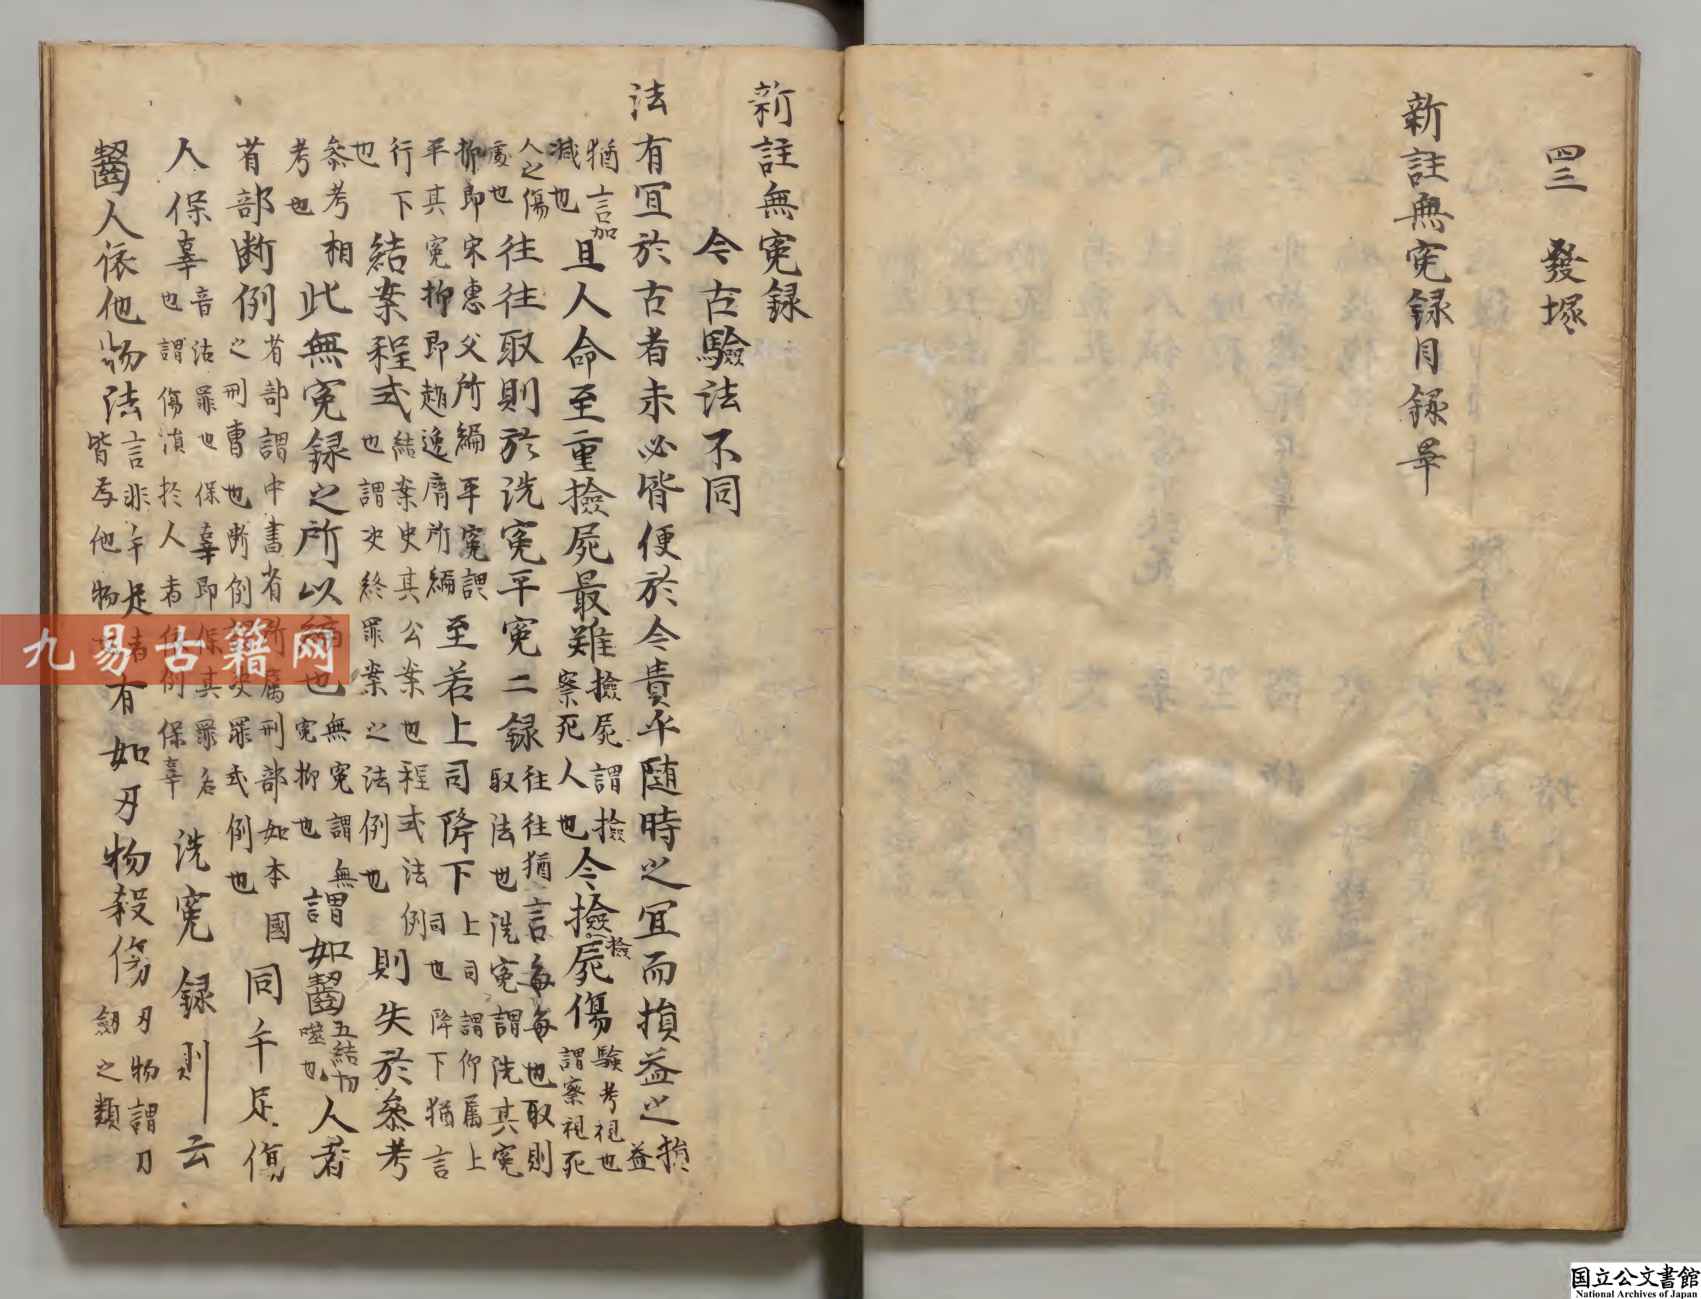 四三 發塚
新註無寃録目録畢
新註無寃録
今古驗法不同
法有冝於古者未必皆便於今貴乎随時之冝而損益之損益
猶言加减也且人命至重撿屍最難撿屍謂撿察死人也今撿屍傷撿驗考視也謂察視死
人之傷處也往往取則於洗寃平寃二録往往猶言每每也取則取法也洗寃謂洗其寃
抑即宋惠父所編平寃謂平其寃抑即趙逸齋所編至若上司降下上司謂仰属上司也降下猶言
行下也結案程式結案史其公案也程式法例也謂决終罪案之法例也則失於叅考
叅考相考也此無寃録之所以編也無寃謂無寃抑也謂如齧五結切噬也人者
省部断例省部謂中書省所属刑部如本國之刑曹也断例謂决罪式例也同手足傷
人保辜音沽罪也保辜即保其罪名也謂傷漬於人者依例保辜洗寃録則云
齧人依他物法言非手足者皆為他物有如刃物殺傷刃物謂刀劒之類
九易古籍网
国立公文書館
National Archives of Japan